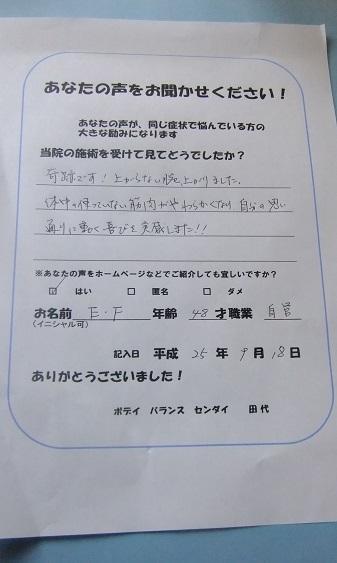 あなたの声をお聞かせください！
あなたの声が、同じ症状で悩んでいる方の
大きな励みになります
当院の施術を受けて見てどうでしたか？
奇跡です！上がらない腕上がりました。
体中の使っていない筋肉がやわらかくなり 自分の思い
通りに動く喜びを実感しました!!
※あなたの声をホームページなどでご紹介しても宜しいですか？
☑ はい □ 匿名 □ ダメ
お名前 E・F 年齢 48 才職業 自営
（イニシャル可）
記入日 平成 25 年 9 月 18 日
ありがとうございました！
ボデイ バランス センダイ 田代